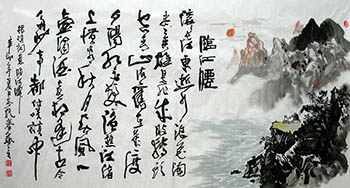 臨江仙
滚滚長江東逝水浪花淘
盡英雄是非成敗轉頭
空青山依舊在幾度
夕陽紅白髮漁樵江渚
上慣看秋月春風一
壺濁酒喜相逢古今
多少事都付笑談中